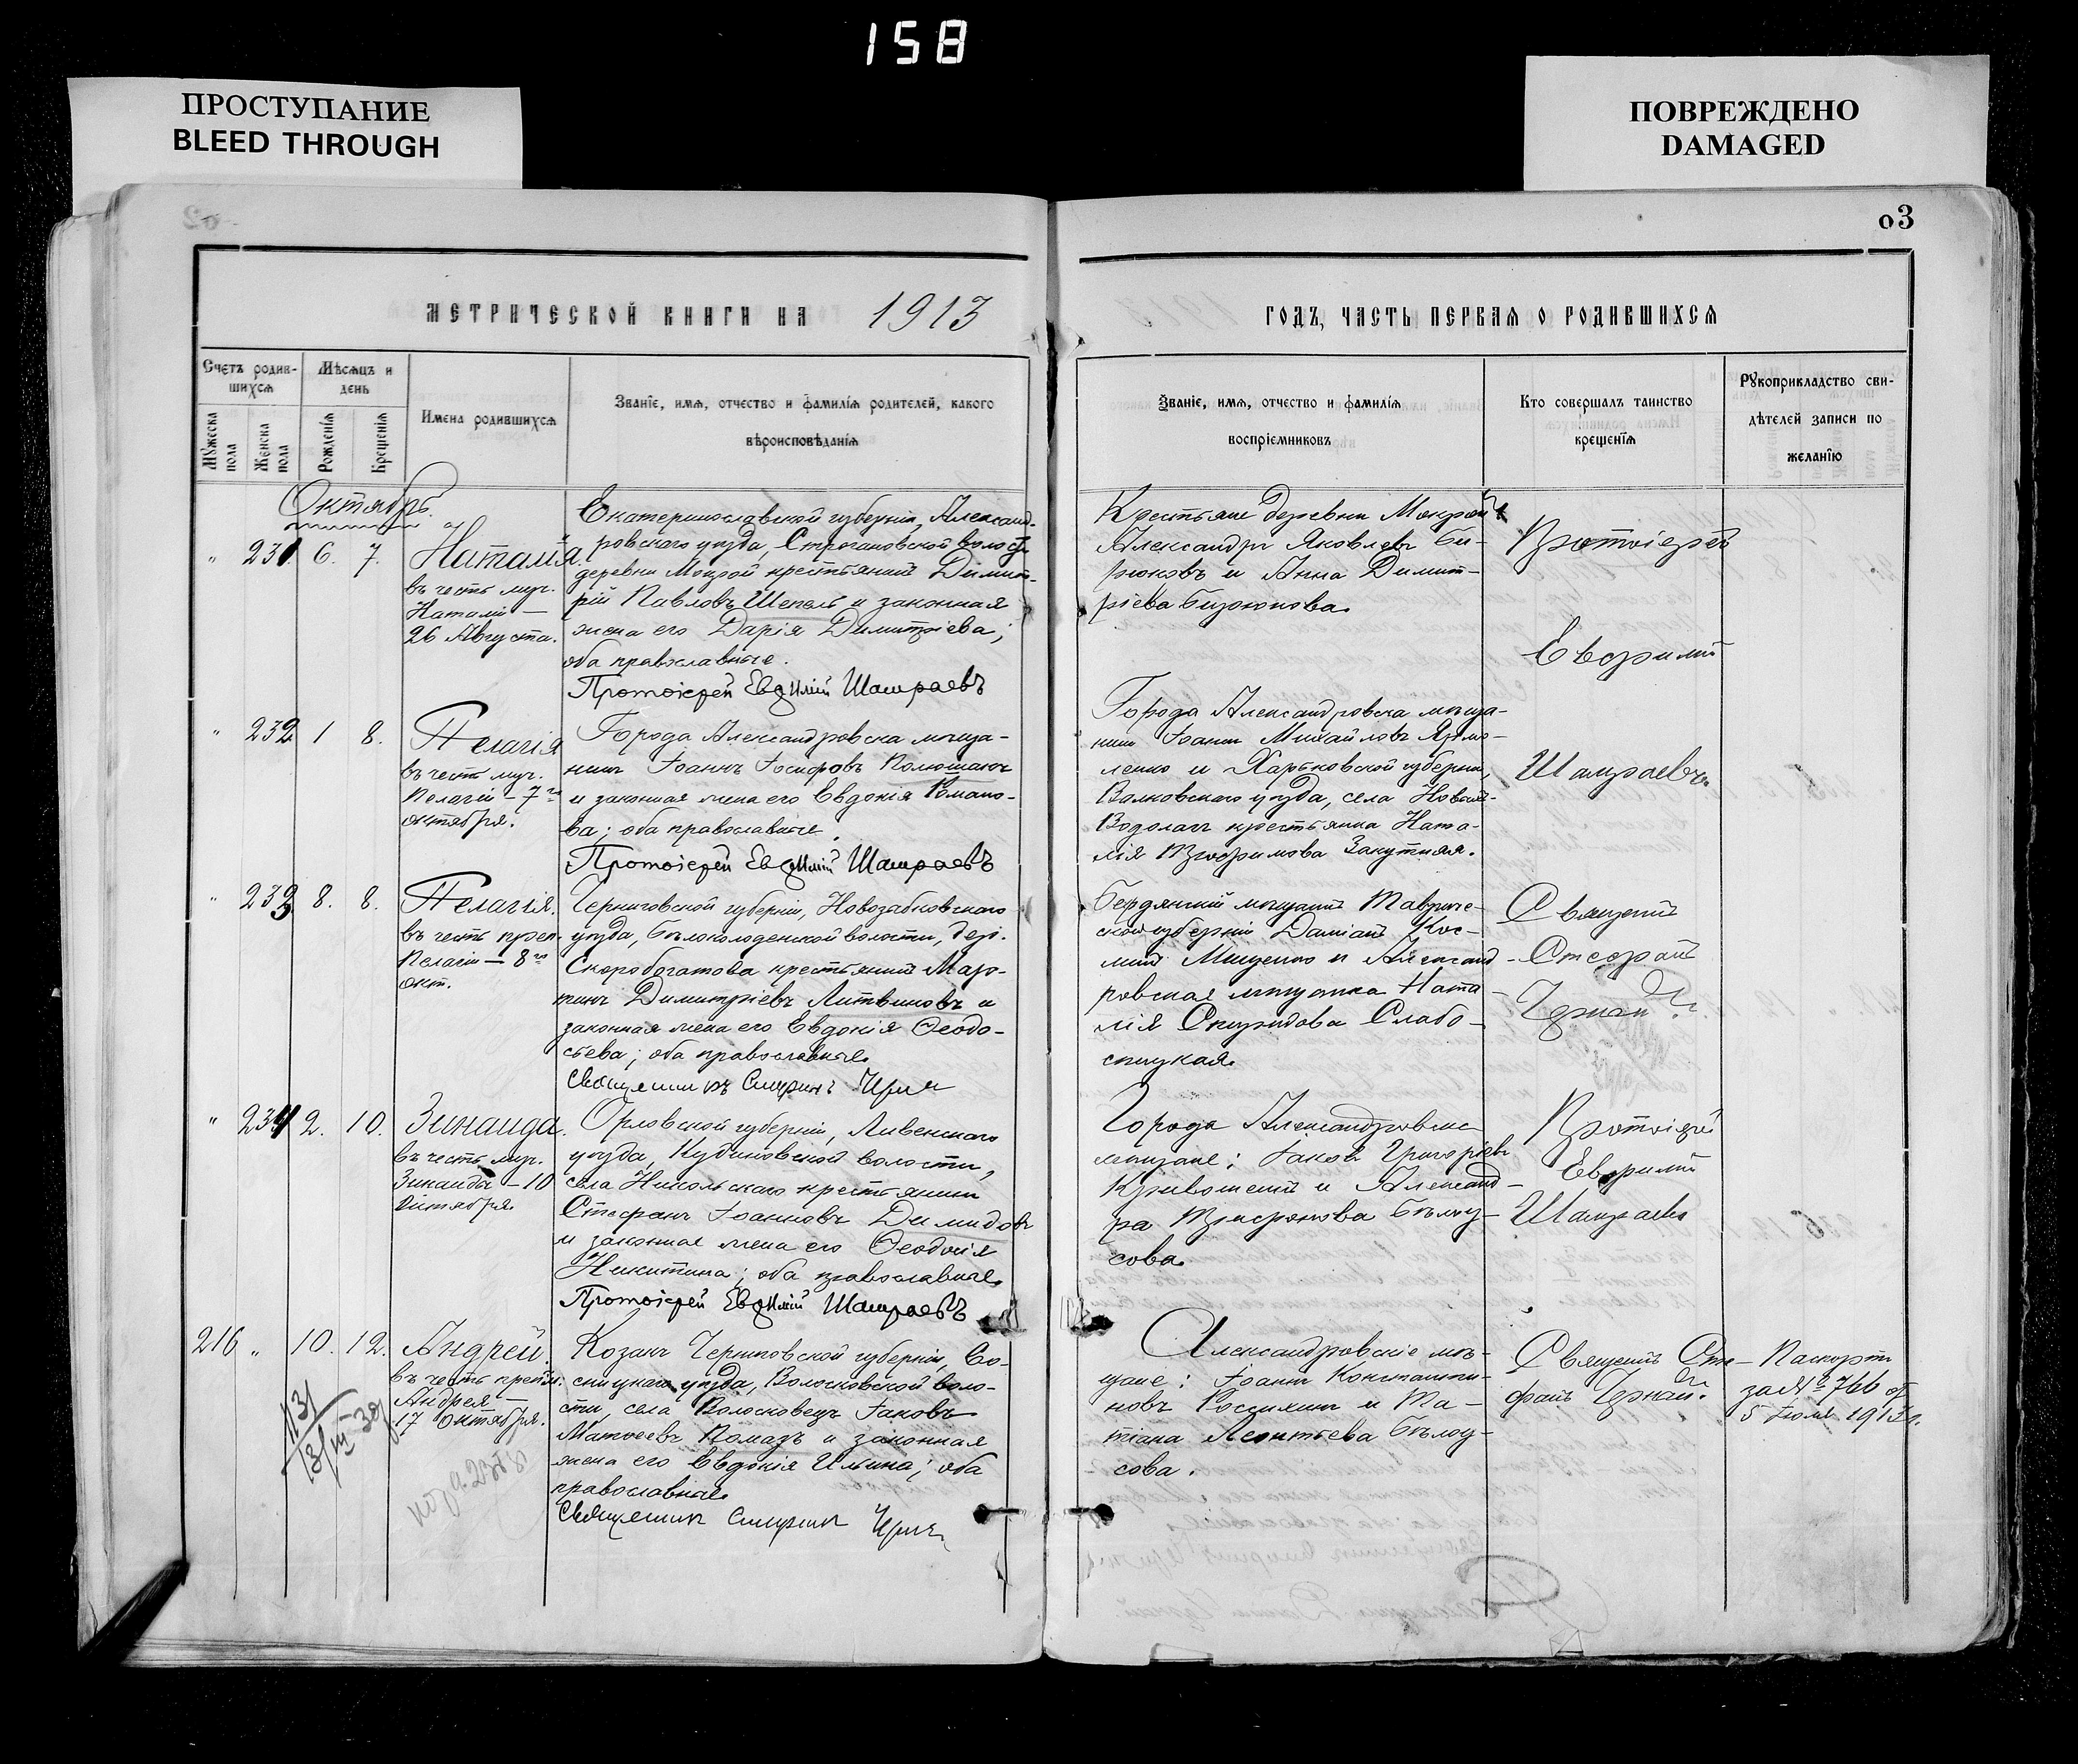 158
ПРОСТУПАНИЕ
BLEED THROUGH
ПОВРЕЖДЕНО
DAMAGED
03
МЕТРИЧЕСКОЙ КНИГИ НА 1913
ГОДЪ, ЧАСТЬ ПЕРВАЯ О РОДИВШИХСЯ
Счетъ родив-
шихся
Мужеска пола
Женска пола
Мѣсяцъ и
день
Рожденія
Крещенія
Имена родившихся
Званіе, имя, отчество и фамилія родителей, какого
вѣроисповѣданія
Званіе, имя, отчество и фамилія
воспріемниковъ
Кто совершалъ таинство
крещенія
Рукоприкладство сви-
дѣтелей записи по
желанію
Октябрь.
" 231. 6. 7.
Наталія.
въ честь муч.
Наталіи —
26 Августа.
Екатеринославской губерніи, Александ-
ровскаго уѣзда, Строгановской волости
деревни Мокрой крестьянинъ Димит-
рій Павловъ Шепель и законная
жена его Дарія Димитріева;
оба православные.
Протоіерей Евѳимій Шамраевъ
Крестьяне деревни Мокрой
Александръ Яковлевъ Би-
рюковъ и Анна Димит-
ріева Бирюкова.
Протоіерей
Евѳимій
Шамраевъ.
" 232 1 8.
Пелагія
въ честь муч.
Пелагіи — 7го
октября.
Города Александровска мѣща-
нинъ Іоаннъ Іосифовъ
и законная жена его Евдокія Романо-
ва; оба православные.
Протоіерей Евѳимій Шамраевъ
Города Александровска мѣща-
нинъ Іоаннъ Михайловъ Ярмо-
ленко и Харьковской губерніи,
Валковскаго уѣзда, села Новой-
Водолаги крестьянка Ната-
лія Трофимова Закутняя.
" 233 8. 8.
Пелагія.
въ честь преп.
Пелагіи — 8го
окт.
Черниговской губерніи, Новозыбковскаго
уѣзда, Бѣлоколоденской волости, дер.
Скоробогатова крестьянинъ Мар-
тинъ Димитріевъ Литвиновъ и
законная жена его Евдокія Ѳеодо-
сьева; оба православные.
Священникъ Стефанъ
Бердянскій мѣщанинъ Тавриче-
ской губерніи Даміанъ Кос-
минъ Мищенко и Александ-
ровская мѣщанка Ната-
лія Спиридова Слабо-
спицкая.
Священникъ
Стефанъ
Чернай
" 234 2. 10.
Зинаида.
въ честь муч.
Зинаиды — 10
Октября.
Орловской губерніи, Ливенскаго
уѣзда, Кудиновской волости,
села Никольскаго крестьянинъ
Стефанъ Іоанновъ Димидовъ
и законная жена его Ѳеодосія
Никитина; оба православные.
Протоіерей Евѳимій Шамраевъ
Города Александровска
мѣщане: Іаковъ Григорьевъ
Кривошеинъ и Александ-
ра Трифонова Бѣлоу-
сова.
Протоіерей
Евѳимій
Шамраевъ
216 " 10. 12.
Андрей.
въ честь препод:
Андрея —
17 Октября.
Козакъ Черниговской губерніи, Со-
сницкаго уѣзда, Волосковской воло-
сти, села Волосковецъ Іаковъ
Матѳеевъ Помазъ и законная
жена его Евдокія Ильина; оба
православные.
Священникъ Стефанъ
Александровскіе мѣ-
щане: Іоаннъ Константи-
новъ Россихинъ и Та-
тіана Леонтьева Бѣлоу-
сова.
Священникъ Сте-
фанъ Чернай.
Паспортъ
за № 766 от
5 Іюля 1913 г.